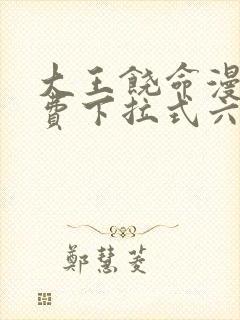 大王饶命漫
费下拉式六
鄭慧菱